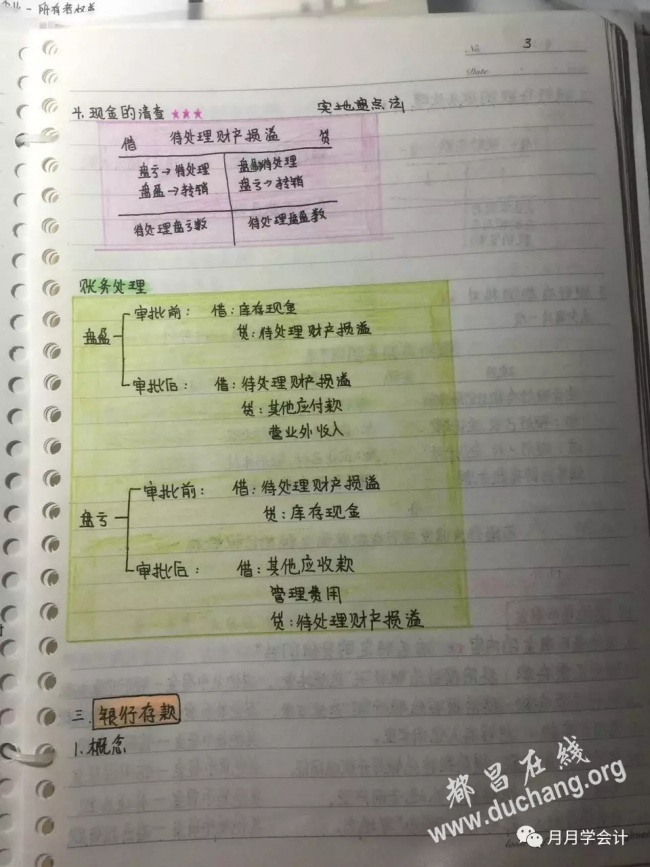 所有者权益
No. 3
Date
4.现金的清查★★★ 实地盘点法
借 待处理财产损溢 贷
盘亏→待处理 盘盈待处理
盘盈→转销 盘亏→转销
待处理盘亏数 待处理盘盈数
账务处理
盘盈
审批前： 借：库存现金
贷：待处理财产损溢
审批后： 借：待处理财产损溢
贷：其他应付款
营业外收入
盘亏
审批前： 借：待处理财产损溢
贷：库存现金
审批后： 借：其他应收款
管理费用
贷：待处理财产损溢
三.银行存款
1.概念
都昌在线
www.duchang.org
月月学会计